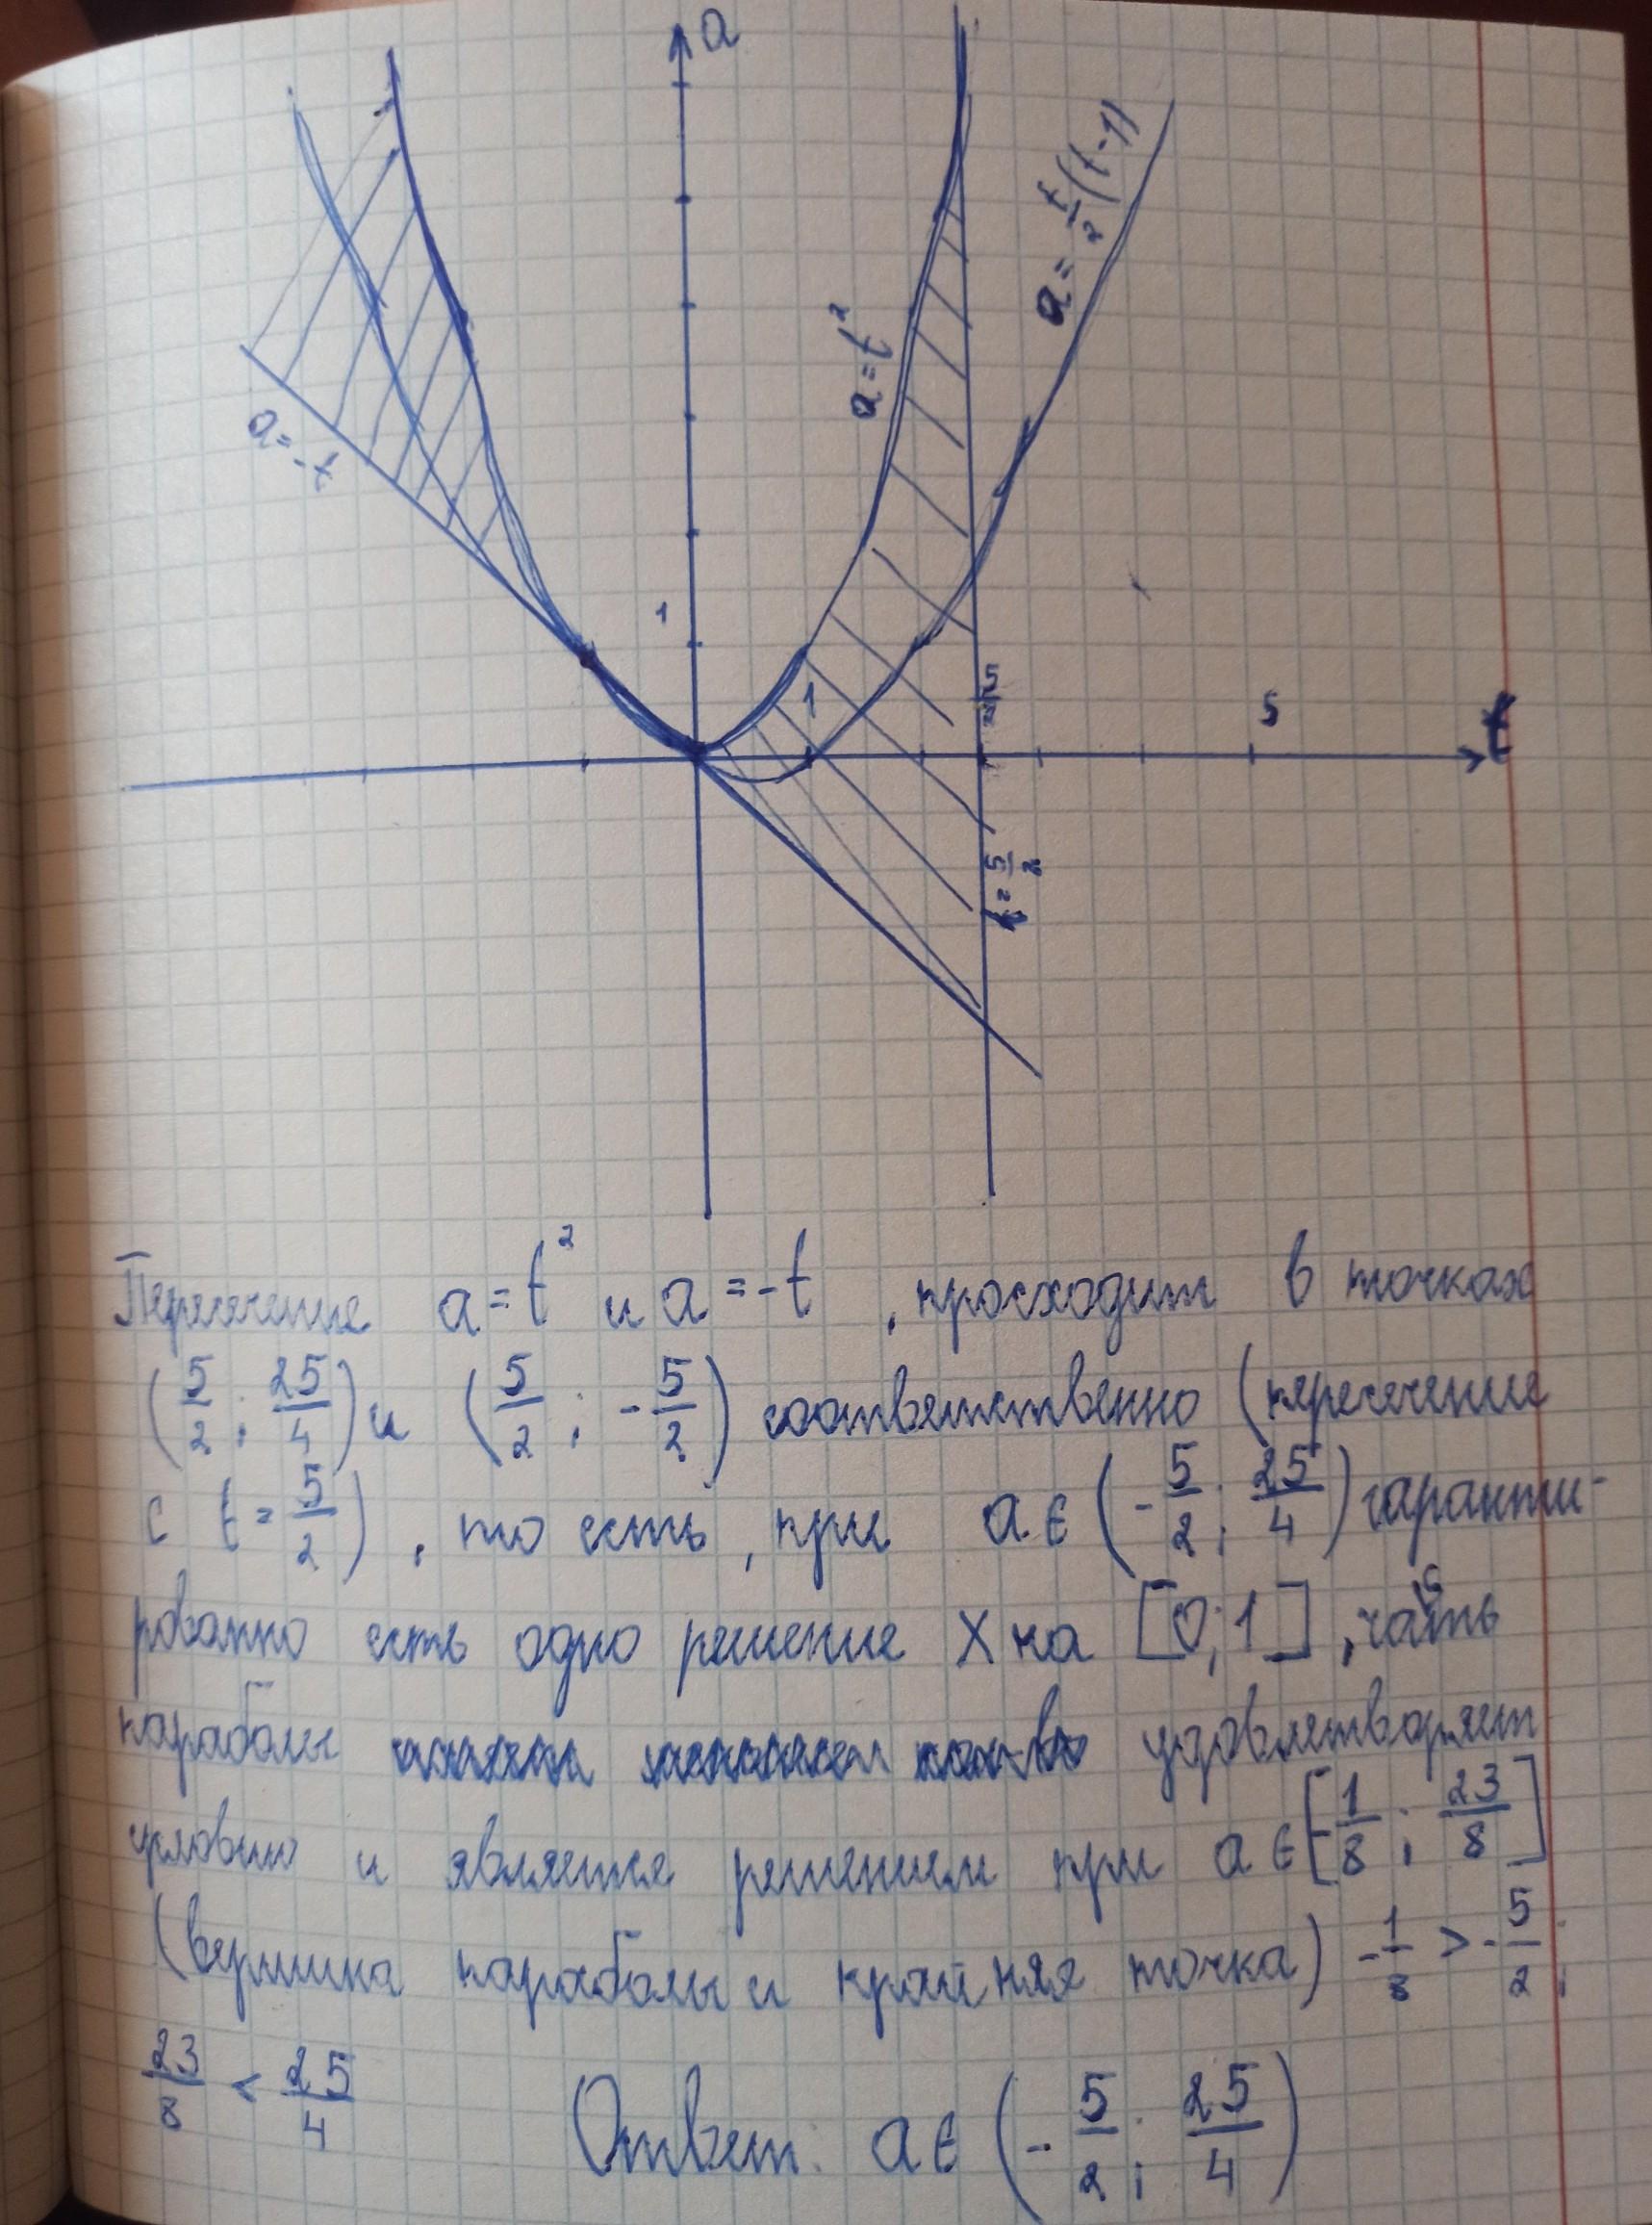 a
a = t/2 (t-1)
a = t²
a = -t
1
1
5/2
5
t
t = 5/2
Пересечение a = t² и a = -t , просходит в точках
(5/2 ; 25/4) и (5/2 ; -5/2) соответственно (пересечение
с t = 5/2) , то есть, при a ∈ (-5/2 ; 25/4) гаранти-
рованно есть одно решение X на [0;1] , часть
параболы удовлетворяет
условию и является решением при a ∈ [-1/8 ; 23/8]
(вершина параболы и крайняя точка) -1/8 > -5/2 ;
23/8 < 25/4 Ответ: a ∈ (-5/2 ; 25/4)